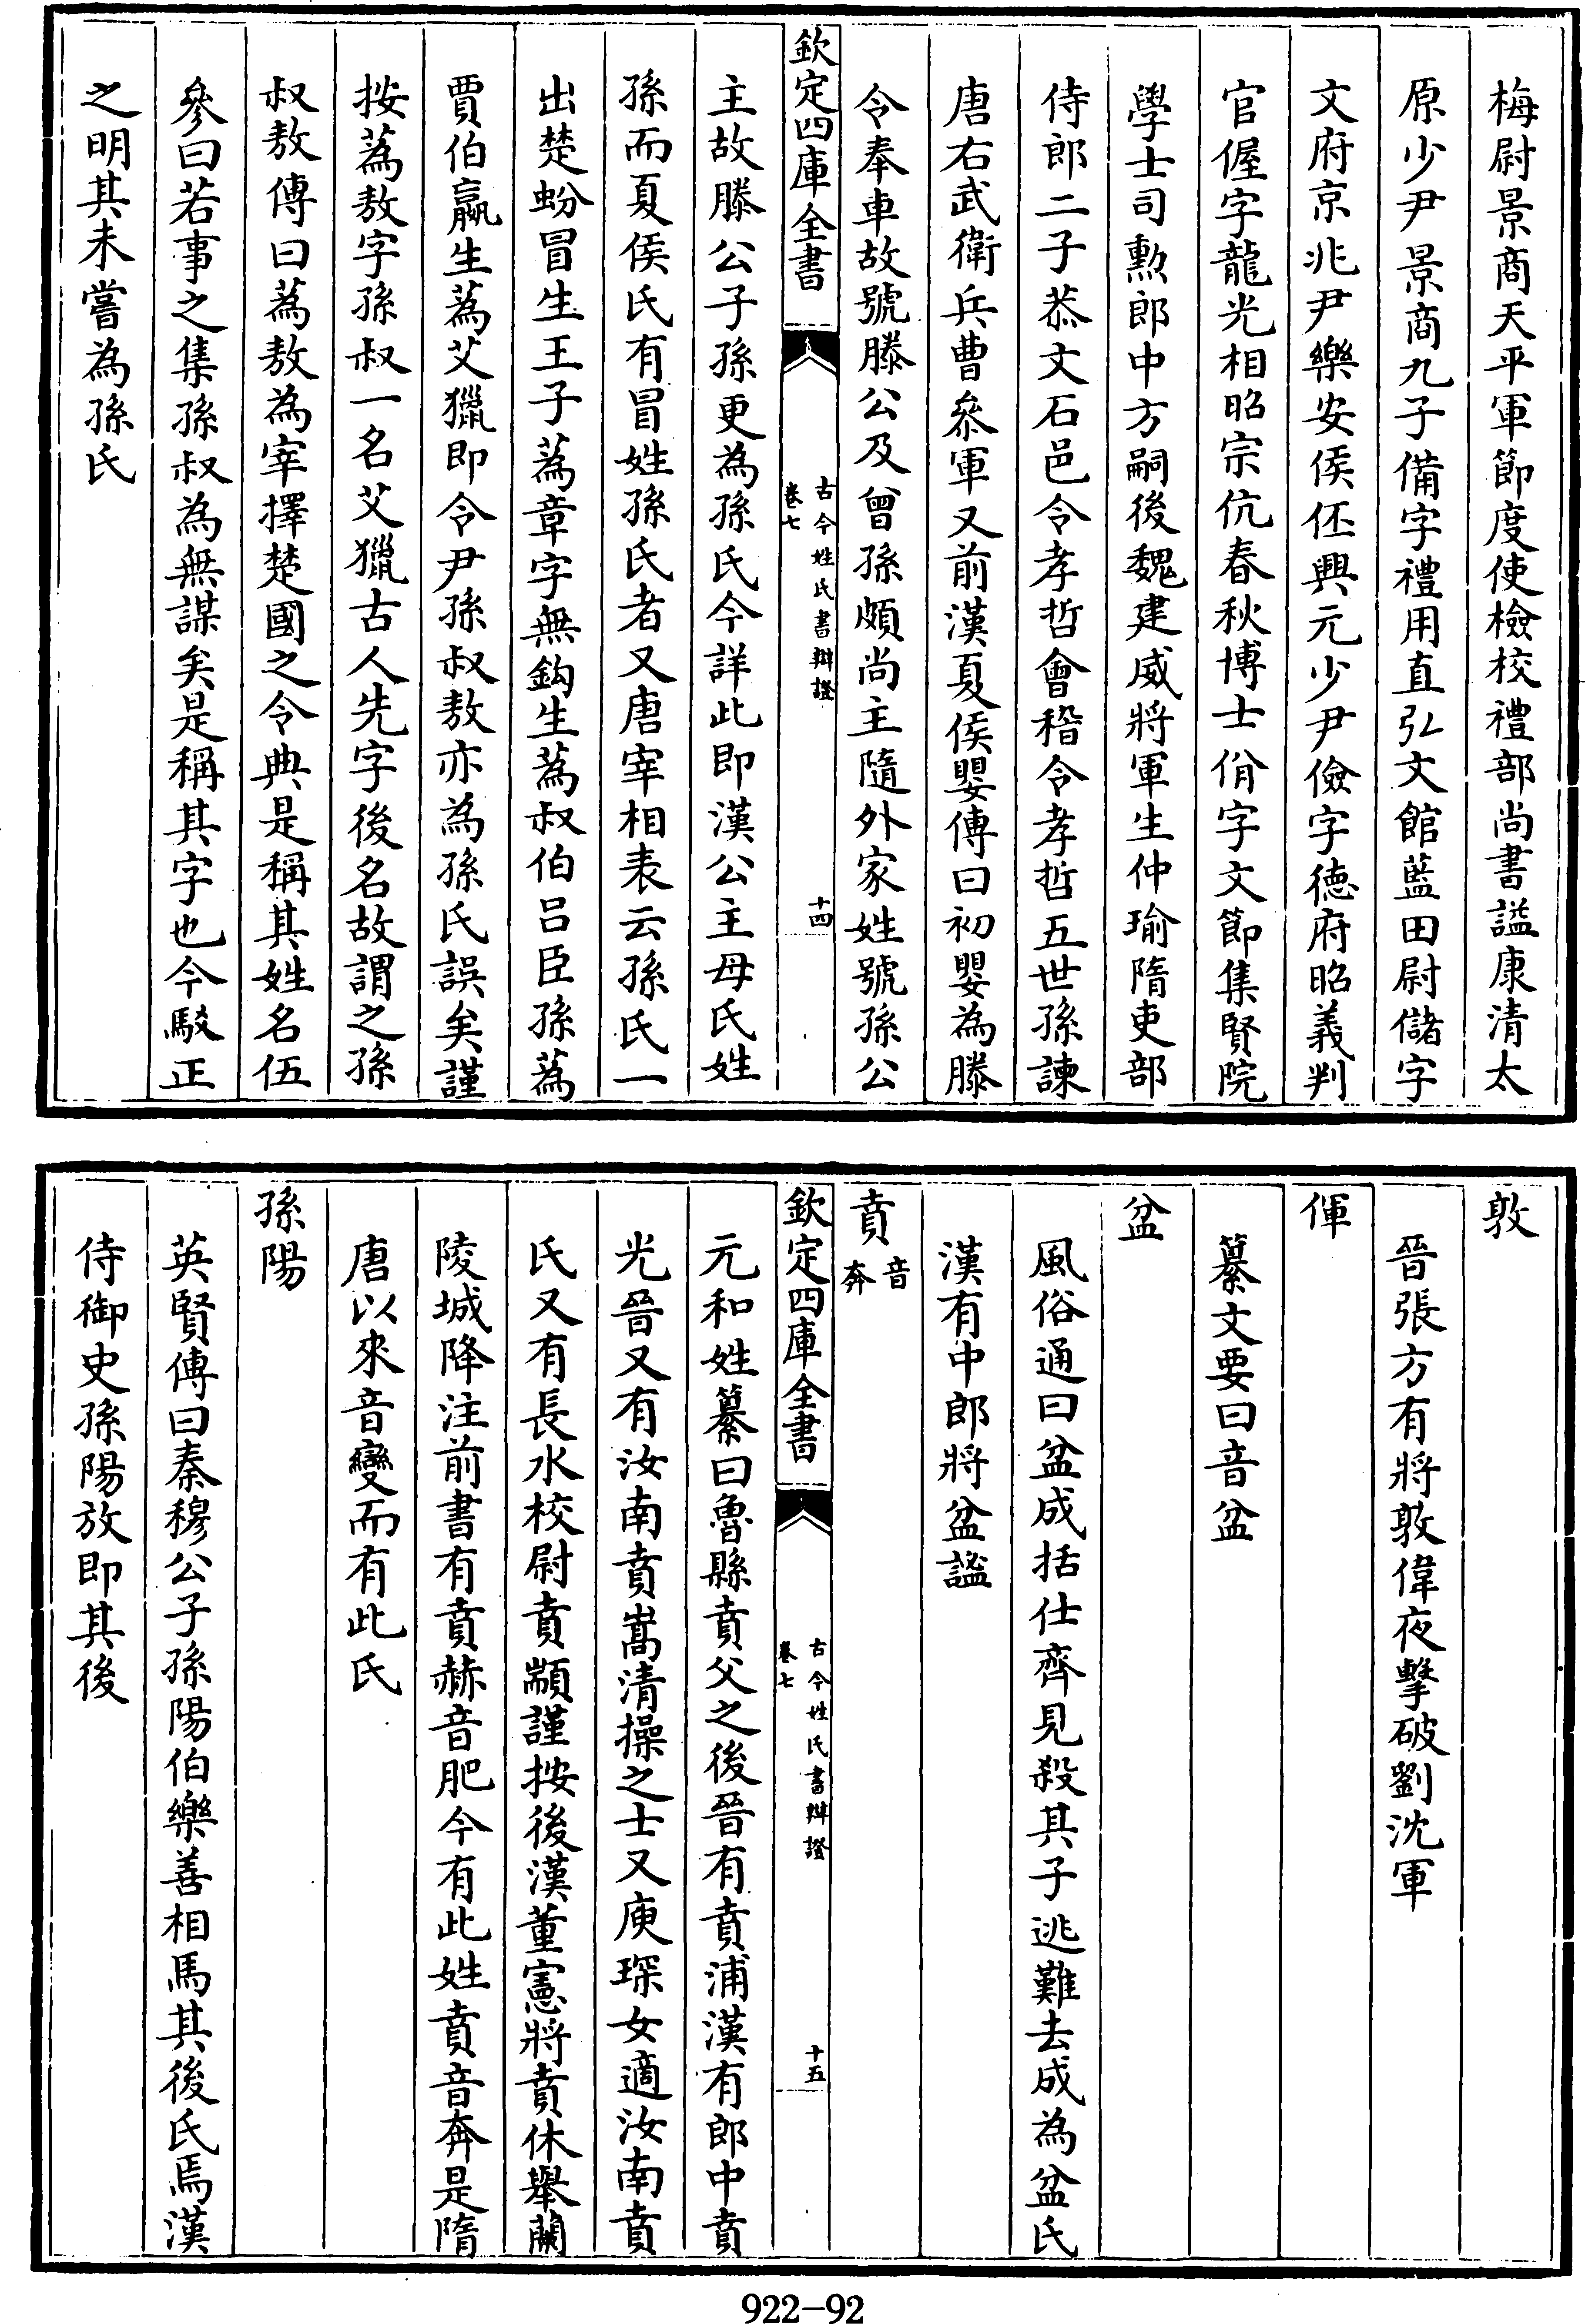 梅尉景商天平軍節度使檢校禮部尚書謚康清太
原少尹景商九子備字禮用直弘文館藍田尉儲字
文府京兆尹樂安侯伾興元少尹儉字德府昭義判
官偓字龍光相昭宗伉春秋博士佾字文節集賢院
學士司勲郎中方嗣後魏建威將軍生仲瑜隋吏部
侍郎二子恭文石邑令孝哲會稽令孝哲五世孫諫
唐右武衛兵曹叅軍又前漢夏侯嬰傳曰初嬰為滕
令奉車故號滕公及曾孫頗尚主隨外家姓號孫公
欽定四庫全書
古今姓氏書辯證
卷七
十四
主故滕公子孫更為孫氏今詳此即漢公主母氏姓
孫而夏侯氏有冒姓孫氏者又唐宰相表云孫氏一
出楚蚡冒生王子蒍章字無鈎生蒍叔伯呂臣孫蒍
賈伯嬴生蒍艾獵即令尹孫叔敖亦為孫氏誤矣謹
按蒍敖字孫叔一名艾獵古人先字後名故謂之孫
叔敖傳曰蒍敖為宰擇楚國之令典是稱其姓名伍
參曰若事之集孫叔為無謀矣是稱其字也今駁正
之明其未嘗為孫氏
敦
晉張方有將敦偉夜擊破劉沈軍
倱
纂文要曰音盆
盆
風俗通曰盆成括仕齊見殺其子逃難去成為盆氏
漢有中郎將盆謐
賁音奔
欽定四庫全書
古今姓氏書辯證
卷七
十五
元和姓纂曰魯縣賁父之後晉有賁浦漢有郎中賁
光晉又有汝南賁嵩清操之士又庾琛女適汝南賁
氏又有長水校尉賁顓謹按後漢董憲將賁休舉蘭
陵城降注前書有賁赫音肥今有此姓賁音奔是隋
唐以來音變而有此氏
孫陽
英賢傳曰秦穆公子孫陽伯樂善相馬其後氏焉漢
侍御史孫陽放即其後
922-92